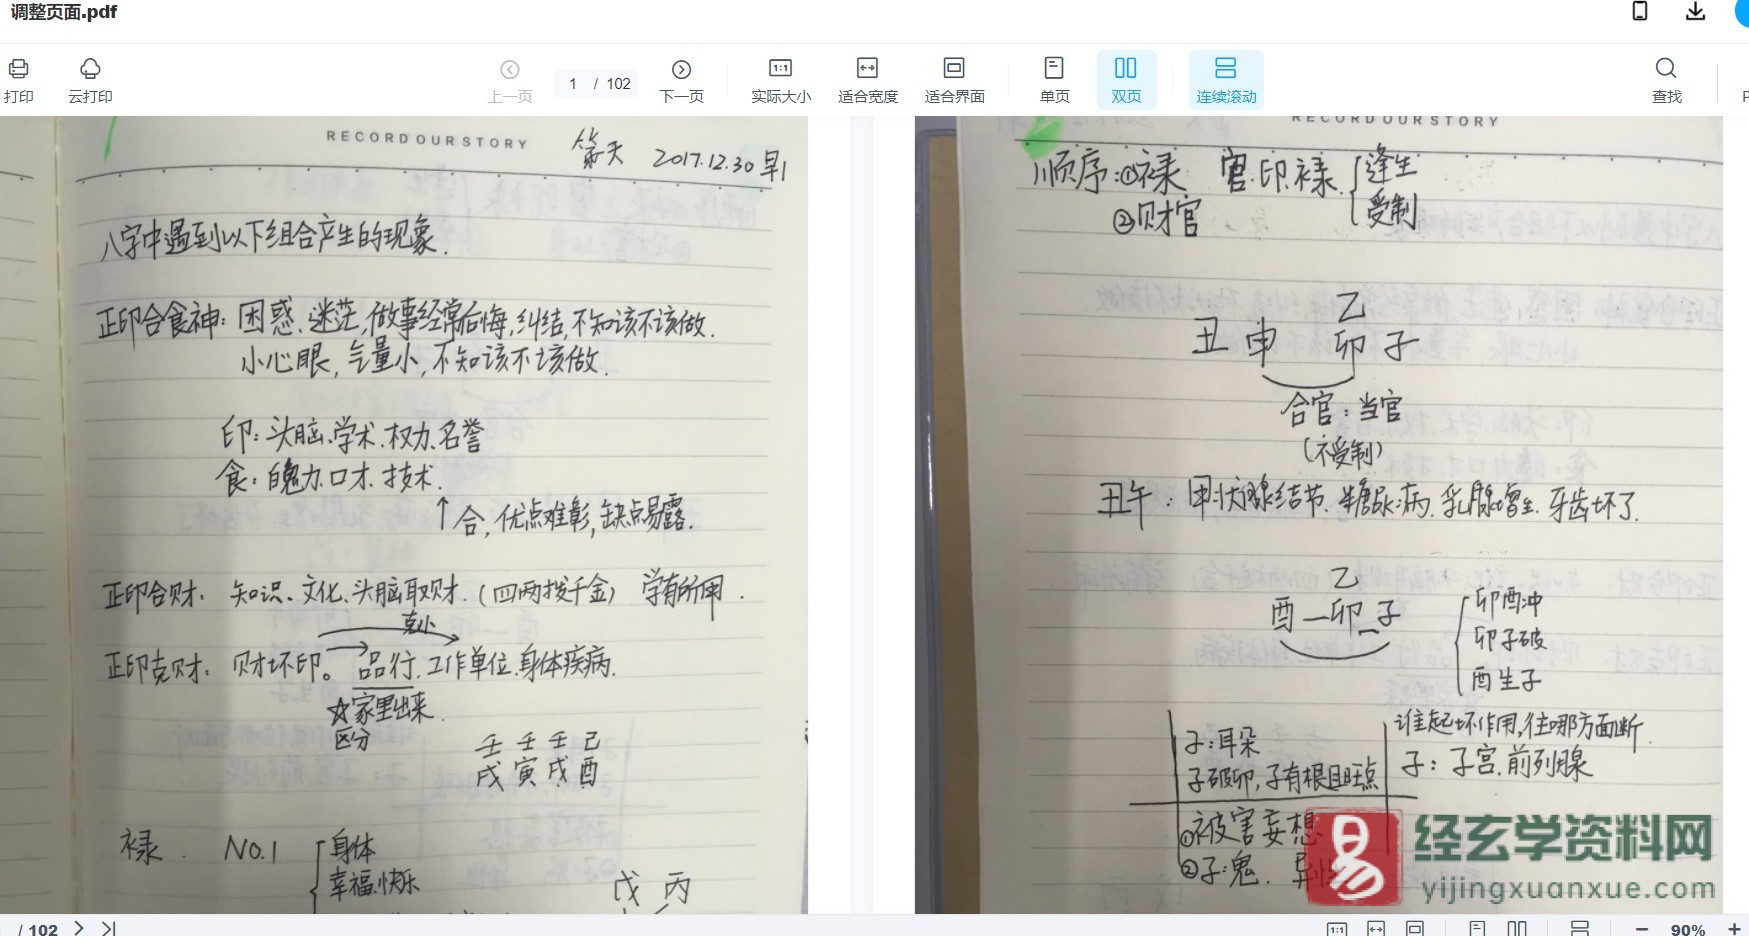 调整页面.pdf
打印
云打印
上一页
1 / 102
下一页
1:1
实际大小
适合宽度
适合界面
单页
双页
连续滚动
查找
RECORD OUR STORY
2017.12.30 早1
八字中遇到以下组合产生的现象.
正印合食神: 困惑、迷茫,做事经常后悔,纠结,不知该不该做.
小心眼,气量小,不知该不该做.
印: 头脑、学术、权力、名誉
食: 魄力、口才、技术.
↑合,优点难彰,缺点易露.
正印合财: 知识、文化、头脑取财.(四两拨千金) 学有所用.
正印克财: 财坏印。品行.工作单位.身体疾病.
☆家里出来.
区分
壬 壬 壬 己
戌 寅 戌 酉
禄. NO.1
身体
幸福.快乐
戊 丙
RECORD OUR STORY
顺序:①禄 官.印.禄. 逢生
受制
②财官
乙
丑 申 卯 子
合官: 当官
(不受制)
丑午: 甲状腺结节.糖尿病.乳腺增生.牙齿坏了.
乙
酉—卯—子
卯酉冲
卯子破
酉生子
谁起坏作用,往哪方面断.
子:耳朵
子破卯,子有根且旺点
子: 子宫.前列腺
①被害妄想
②子:鬼.
易
经玄学资料网
yijingxuanxue.com
/ 102
1:1
90%